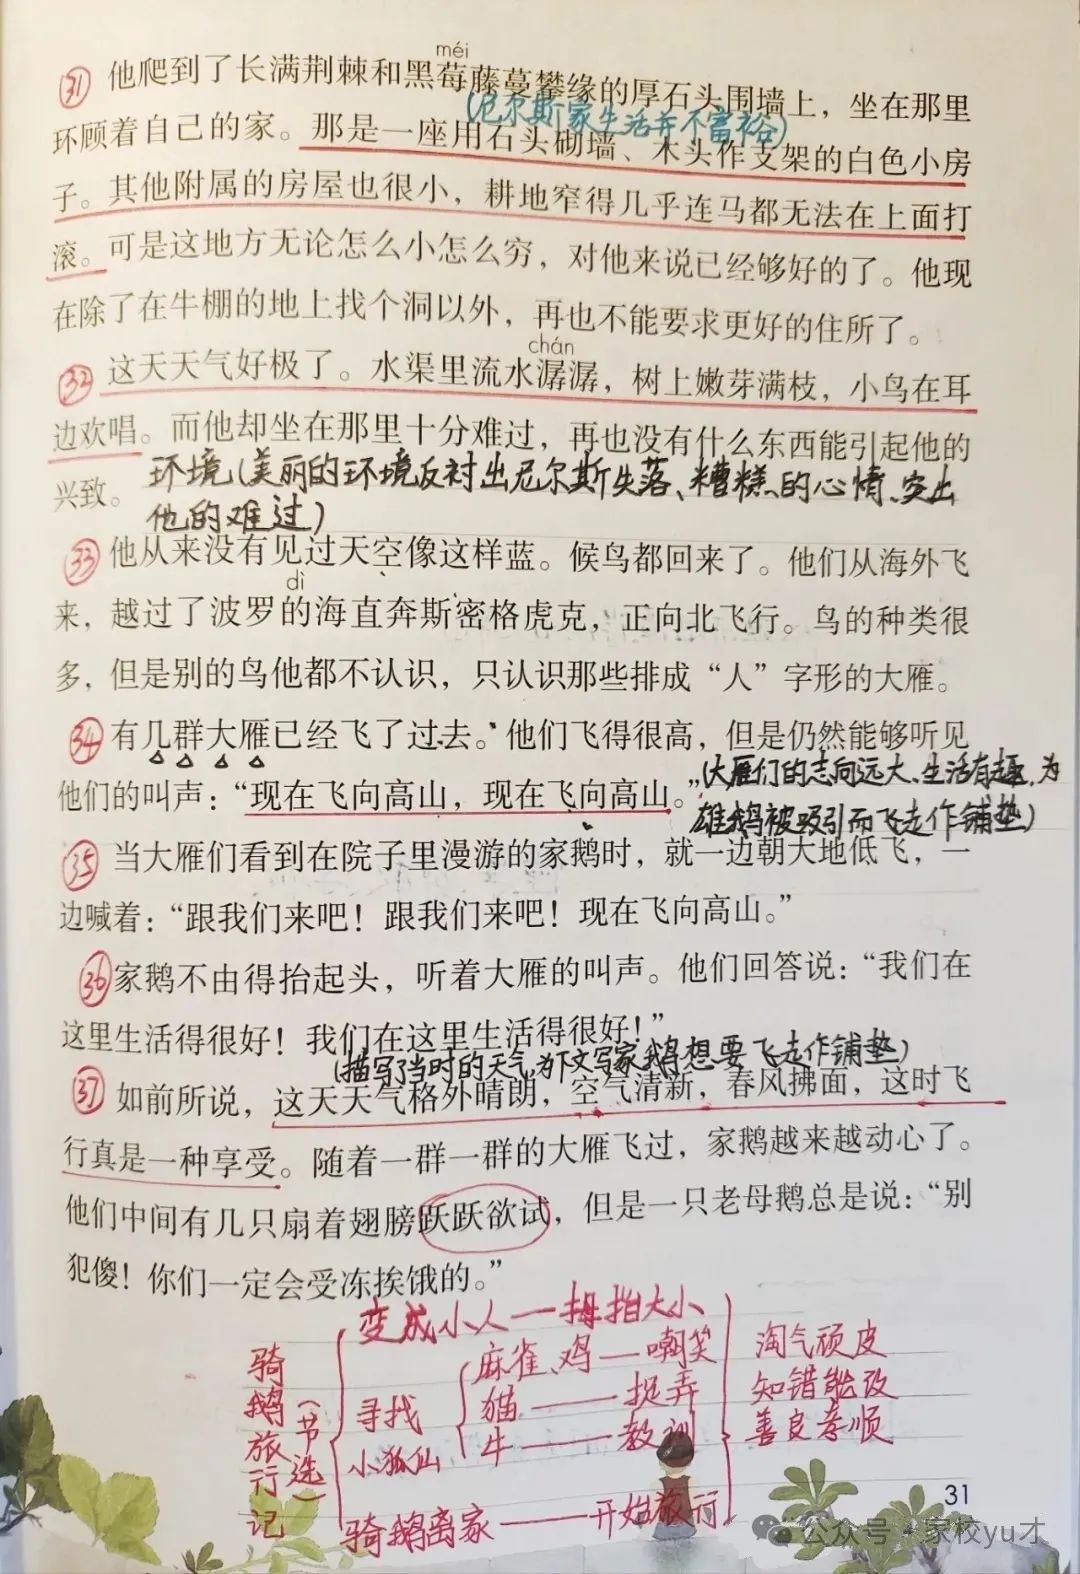 méi
㉛ 他爬到了长满荆棘和黑莓藤蔓攀缘的厚石头围墙上，坐在那里
(尼尔斯家生活并不富裕)
环顾着自己的家。那是一座用石头砌墙、木头作支架的白色小房
子。其他附属的房屋也很小，耕地窄得几乎连马都无法在上面打
滚。可是这地方无论怎么小怎么穷，对他来说已经够好的了。他现
在除了在牛棚的地上找个洞以外，再也不能要求更好的住所了。
chán
㉜ 这天天气好极了。水渠里流水潺潺，树上嫩芽满枝，小鸟在耳
边欢唱。而他却坐在那里十分难过，再也没有什么东西能引起他的
兴致。
环境(美丽的环境反衬出尼尔斯失落、糟糕的心情、突出
他的难过)
㉝ 他从来没有见过天空像这样蓝。候鸟都回来了。他们从海外飞
dì
来，越过了波罗的海直奔斯密格虎克，正向北飞行。鸟的种类很
多，但是别的鸟他都不认识，只认识那些排成“人”字形的大雁。
㉞ 有几群大雁已经飞了过去。他们飞得很高，但是仍然能够听见
他们的叫声：“现在飞向高山，现在飞向高山。”
(大雁们的志向远大、生活有趣，为
雄鹅被吸引而飞走作铺垫)
㉟ 当大雁们看到在院子里漫游的家鹅时，就一边朝大地低飞，一
边喊着：“跟我们来吧！跟我们来吧！现在飞向高山。”
㊱ 家鹅不由得抬起头，听着大雁的叫声。他们回答说：“我们在
这里生活得很好！我们在这里生活得很好！”
(描写了当时的天气，为下文写家鹅想要飞走作铺垫)
㊲ 如前所说，这天天气格外晴朗，空气清新，春风拂面，这时飞
行真是一种享受。随着一群一群的大雁飞过，家鹅越来越动心了。
他们中间有几只扇着翅膀跃跃欲试，但是一只老母鹅总是说：“别
犯傻！你们一定会受冻挨饿的。”
骑鹅旅行记
(节选)
变成小人—拇指大小
寻找
小狐仙
麻雀、鸡—嘲笑
猫——捉弄
牛——教训
骑鹅离家——开始旅行
淘气顽皮
知错能改
善良孝顺
31
公众号·家校yu才